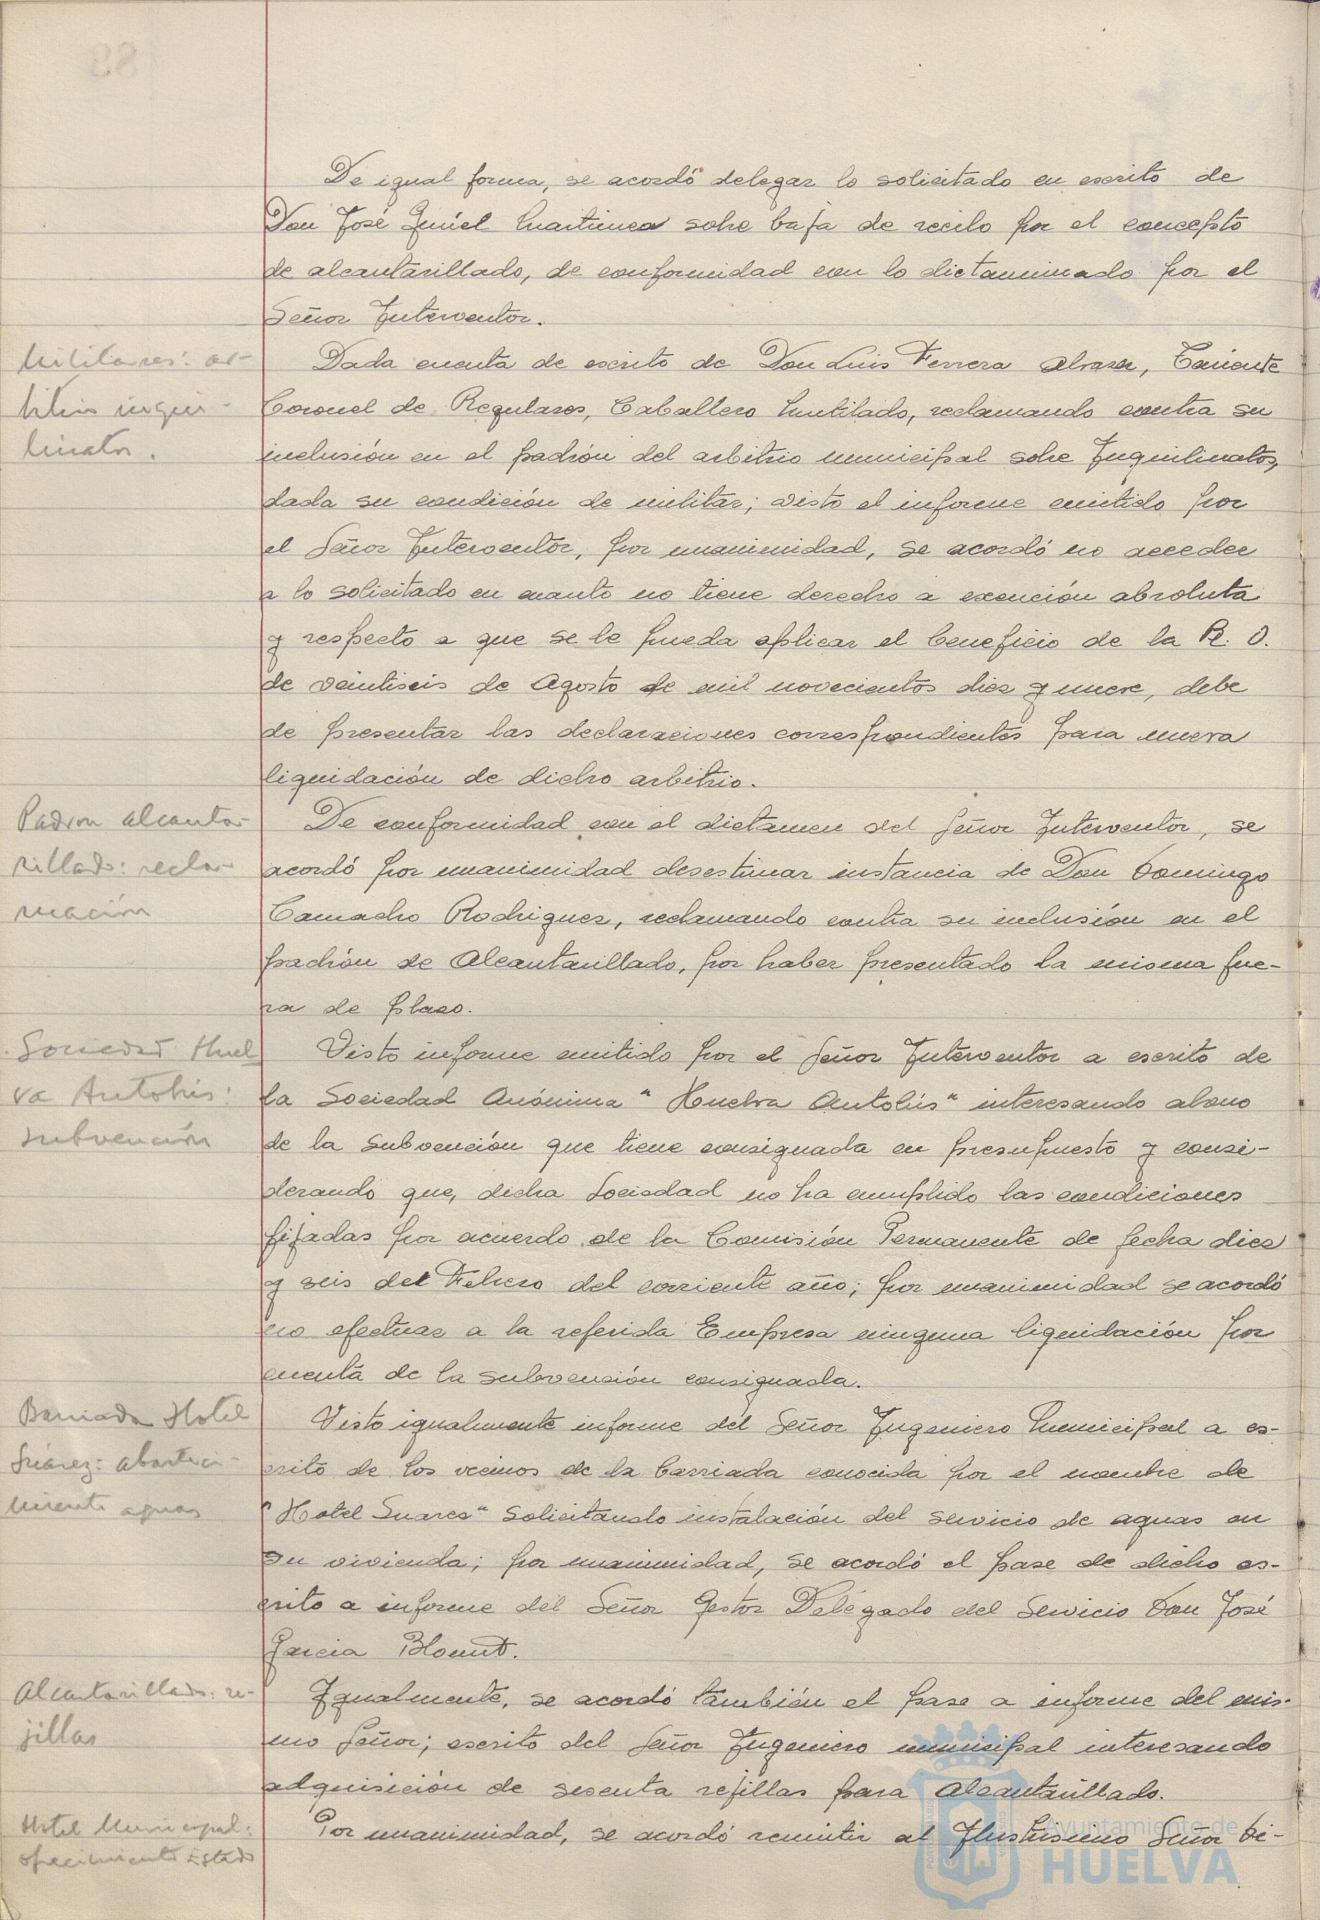 De igual forma, se acordó delegar lo solicitado en escrito de
Don José Martinez sobre baja de recibo por el concepto
de alcantarillado, de conformidad con lo dictaminado por el
Señor Interventor.
Militares: ar-
bitrio inqui-
linatos.
Dada cuenta de escrito de Don Luis Ferrera Alvarez, Teniente
Coronel de Regulares, Caballero Mutilado, reclamando contra su
inclusión en el padrón del arbitrio municipal sobre Inquilinatos,
dada su condición de militar; visto el informe emitido por
el Señor Interventor, por unanimidad, se acordó no acceder
a lo solicitado en cuanto no tiene derecho a exención absoluta
y respecto a que se le pueda aplicar el beneficio de la R. O.
de veintiseis de Agosto de mil novecientos diez y nueve, debe
de presentar las declaraciones correspondientes para nueva
liquidación de dicho arbitrio.
Padron alcanta-
rillado: recla-
mación
De conformidad con el dictamen del Señor Interventor, se
acordó por unanimidad desestimar instancia de Don Domingo
Camacho Rodriguez, reclamando contra su inclusión en el
padrón de Alcantarillado, por haber presentado la misma fue-
ra de plazo.
Sociedad Huel
va Autobús:
subvención
Visto informe emitido por el Señor Interventor a escrito de
la Sociedad Anónima "Huelva Autobús" interesando abono
de la subvención que tiene consignada en presupuesto y consi-
derando que, dicha Sociedad no ha cumplido las condiciones
fijadas por acuerdo de la Comisión Permanente de fecha diez
y seis del Febrero del corriente año; por unanimidad se acordó
no efectuar a la referida Empresa ninguna liquidación por
cuenta de la subvención consignada.
Barriada Hotel
Suárez: abasteci-
miento aguas
Visto igualmente informe del Señor Ingeniero Municipal a es-
crito de los vecinos de la barriada conocida por el nombre de
"Hotel Suarez" solicitando instalación del servicio de aguas en
su vivienda; por unanimidad, se acordó el pase de dicho es-
crito a informe del Señor Gestor Delegado del Servicio Don José
Garcia Blount.
Alcantarillado: re-
jillas
Igualmente, se acordó también el pase a informe del mis-
mo Señor; escrito del Señor Ingeniero municipal interesando
adquisición de sesenta rejillas para Alcantarillado.
Hotel Municipal:
ofrecimiento Estado
Por unanimidad, se acordó remitir al Ilustrisimo Señor Di-
Ayuntamiento de
HUELVA